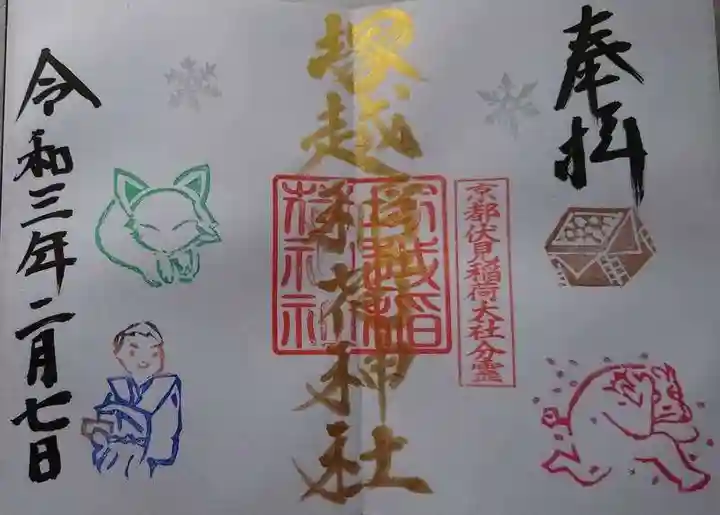 奉拝
京都伏見稲荷大社分霊
塚越稲荷神社
塚越稲
荷神社
令和三年二月七日